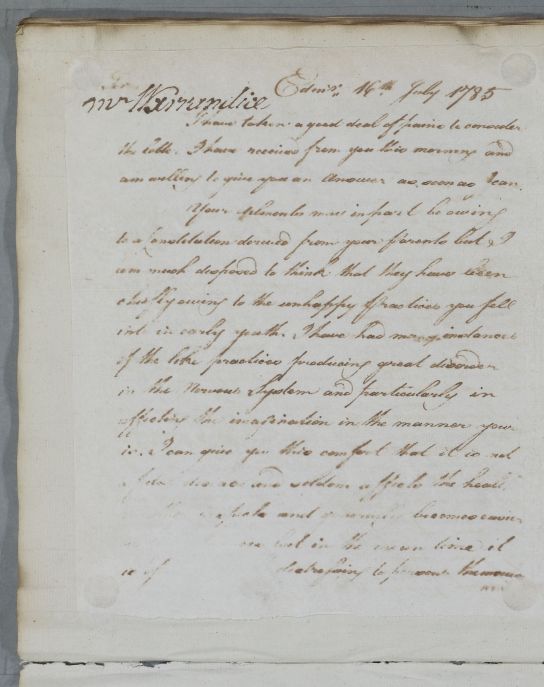 Sir Edinr. 16th July 1785
Mr Harrundice
I have taken a good deal of pains to consider
the letter I have received from you this morning and
am willing to give you an answer as soon as I can.
Your ailments may in part be owing
to a Constitution derived from your parents but I
am much disposed to think that they have been
chiefly owing to the unhappy practices you fell
into in early youth. I have had many instances
of the like practices producing great disorder
in the nervous system and particularly in
affecting the imagination in the manner your
is. I can give you this comfort that it is not
a and seldom affects the heal
and becomes easier
but in the mean time it
is of distressing to persons the